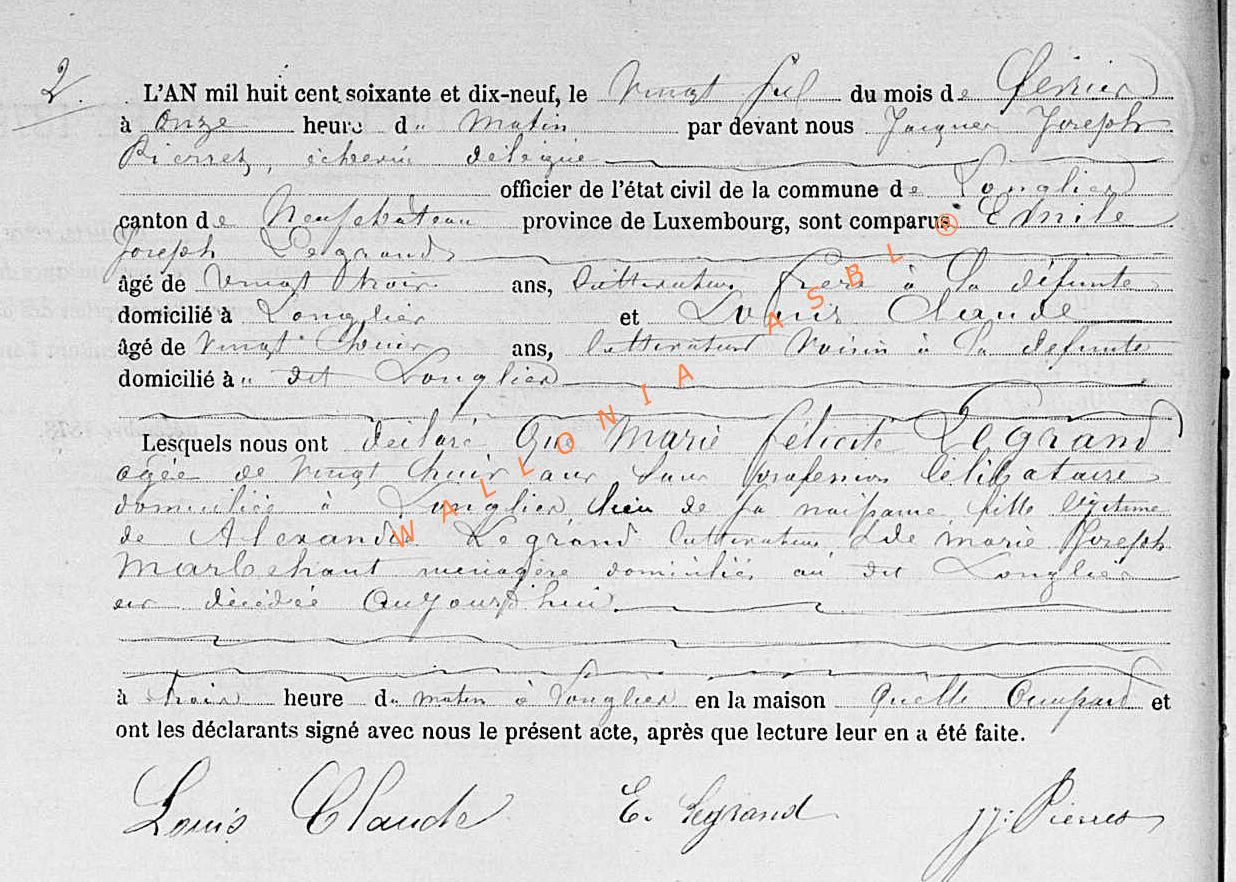 2.
L'AN mil huit cent soixante et dix-neuf, le vingt du mois de février
à onze heure du matin par devant nous Jacques Joseph
Pierret, échevin délégué
officier de l'état civil de la commune de Longlier
canton de Neufchâteau province de Luxembourg, sont comparus Emile
Joseph Legrand
âgé de vingt trois ans, cultivateur frère à la défunte
domicilié à Longlier et Louis Claude
âgé de vingt ans, cultivateur voisin à la défunte
domicilié à dit Longlier
Lesquels nous ont déclaré que Marie félicité Legrand
agée de vingt ans sans profession célibataire
domiciliée à Longlier, lieu de sa naissance, fille légitime
de Alexandre Legrand cultivateur, & de marie Joseph
Marbehant ménagère domiciliés au dit Longlier
est décédée aujourd'hui
à trois heure du matin à Longlier en la maison et
ont les déclarants signé avec nous le présent acte, après que lecture leur en a été faite.
Louis Claude E. Legrand JJ. Pierret
WALLONIA ASBL ®